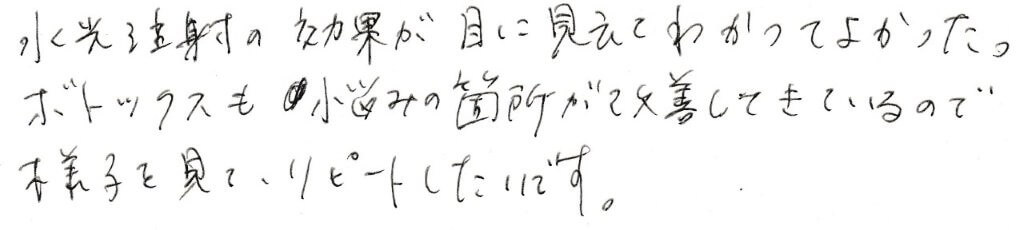 水光注射の効果が目に見えてわかってよかった。
ボトックスも小悩みの箇所が改善してきているので
様子を見て、リピートしたいです。